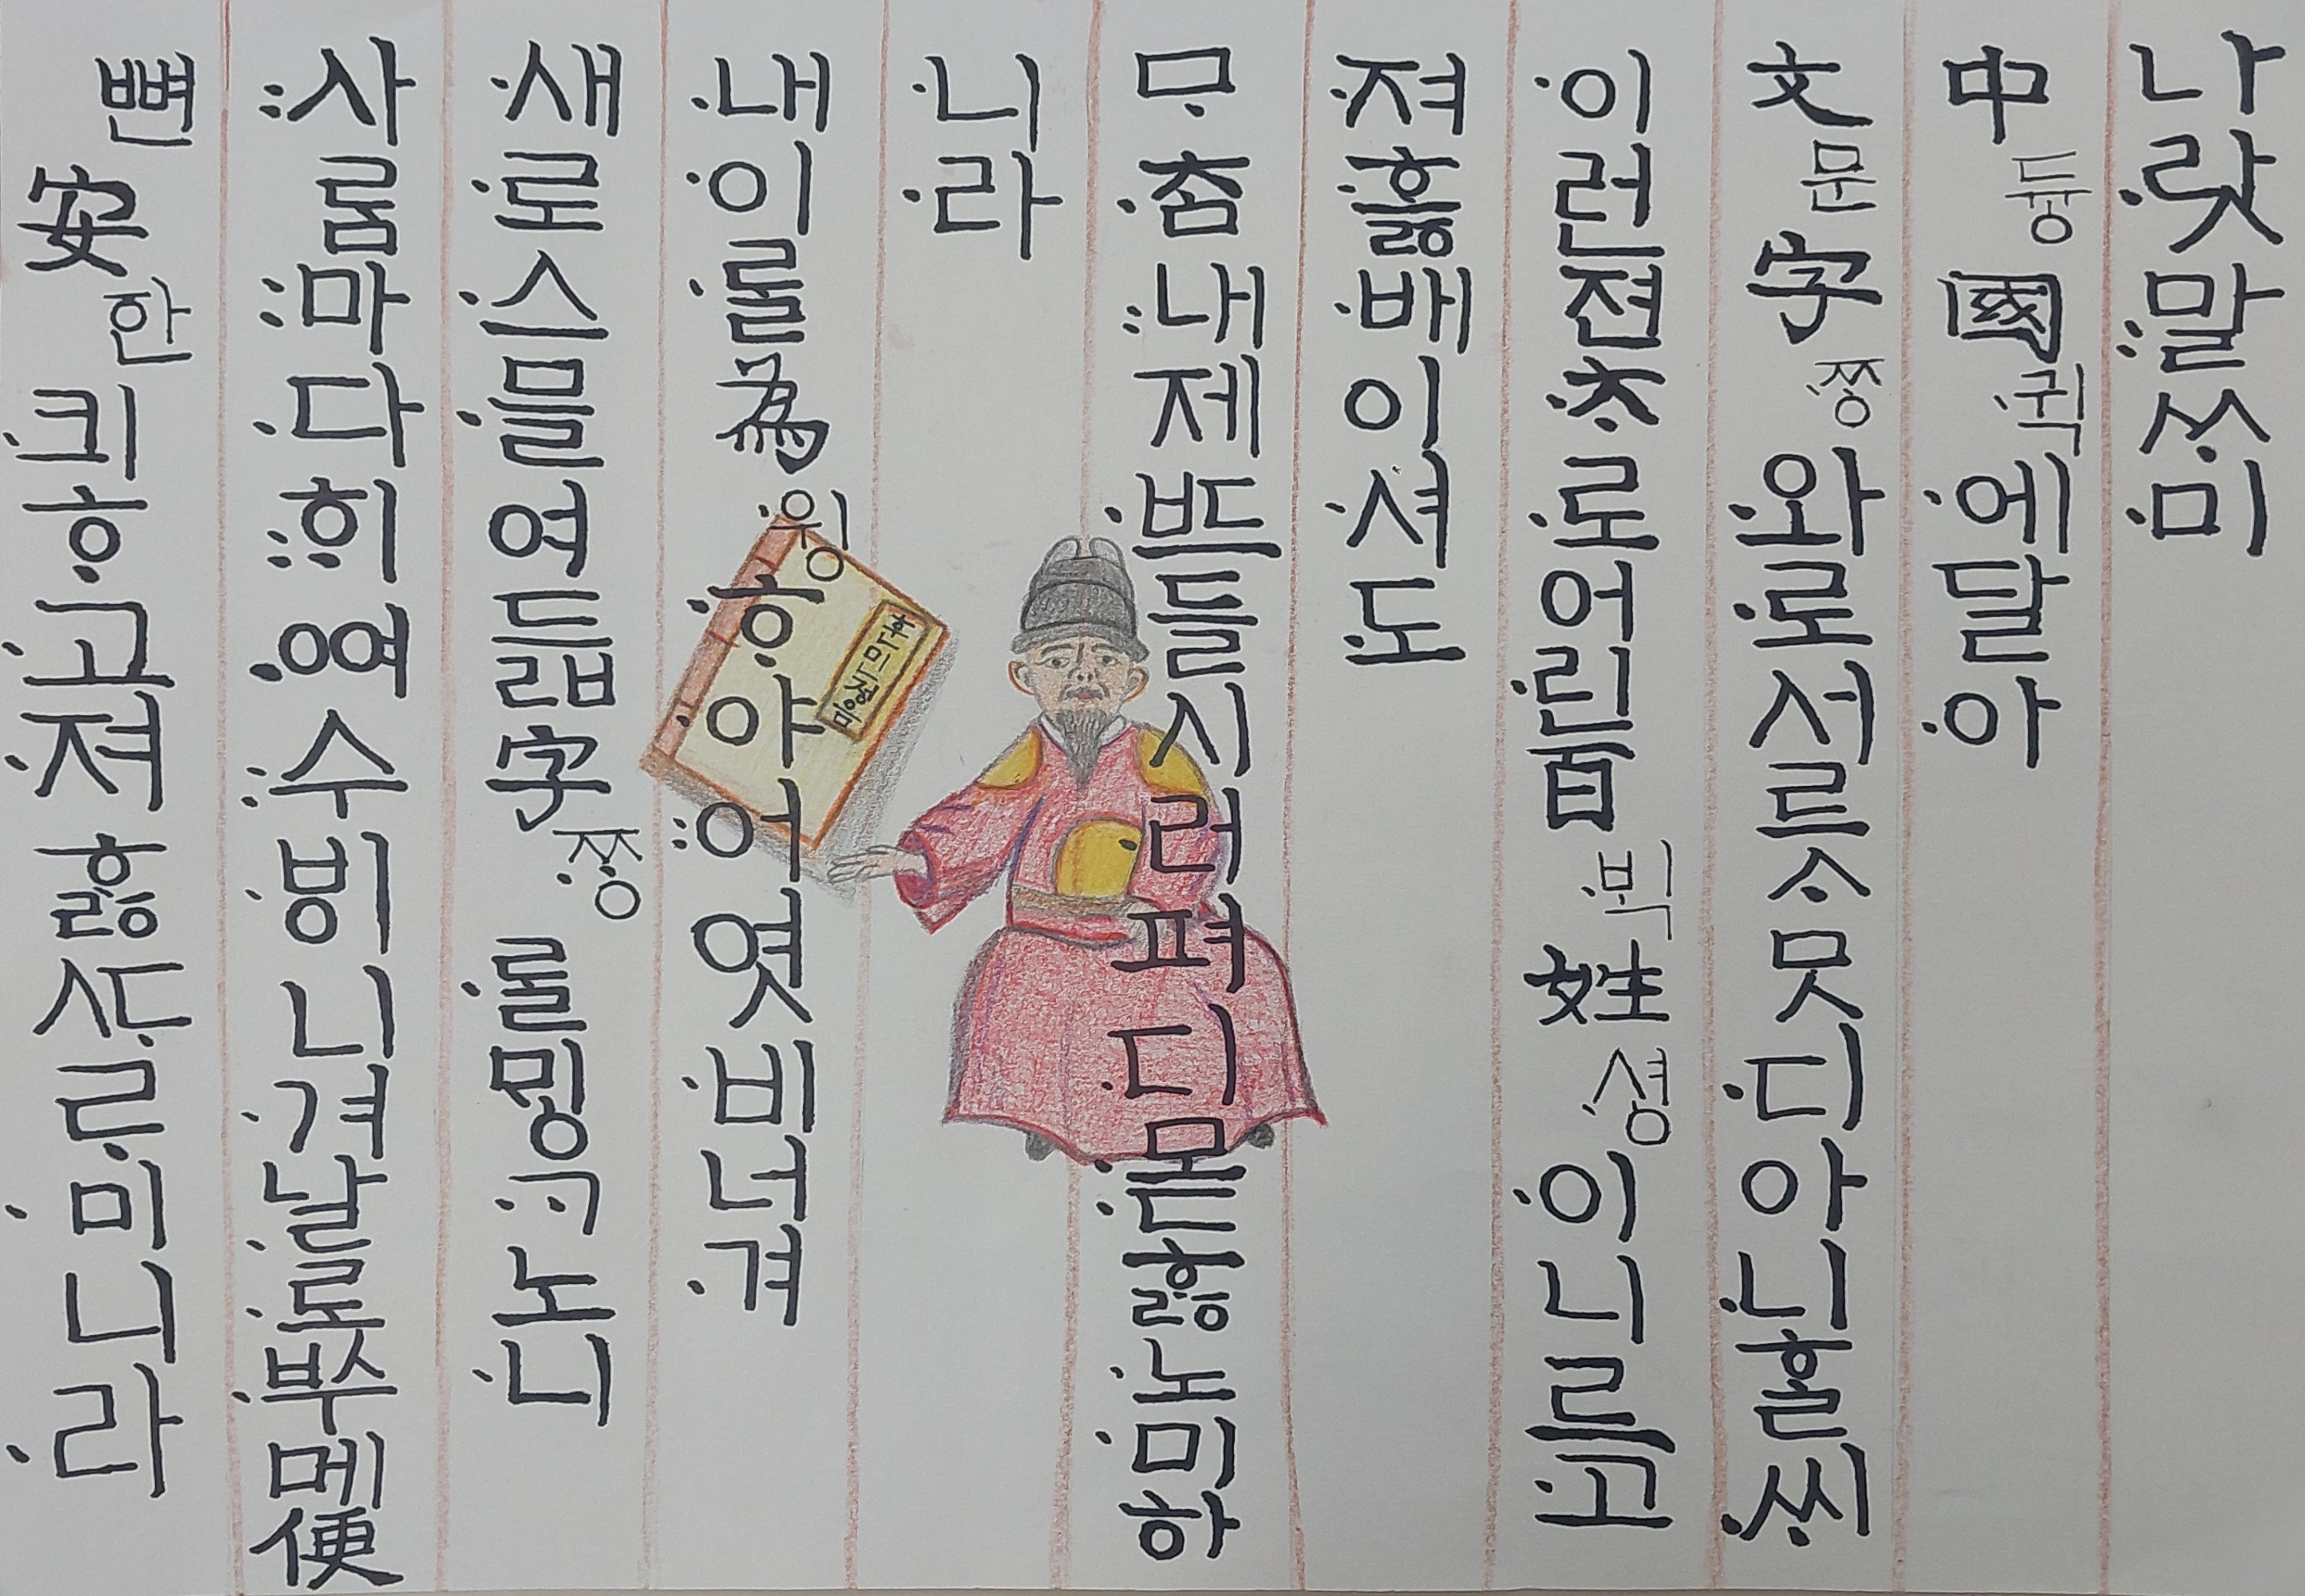 나랏말ᄊᆞ미
中듕國귁에달아
文문字ᄍᆞᆼ와로서르ᄉᆞᄆᆞᆺ디아니ᄒᆞᆯᄊᆡ
이런젼ᄎᆞ로어린百ᄇᆡᆨ姓셩이니르고
져ᄒᆞᇙ배이셔도
ᄆᆞᄎᆞᆷ내제ᄠᅳ들시러펴디몯ᄒᆞᇙ노미하
니라
내이ᄅᆞᆯ為윙ᄒᆞ야어엿비너겨
새로스믈여듧字ᄍᆞᆼᄅᆞᆯᄆᆡᇰᄀᆞ노니
사ᄅᆞᆷ마다ᄒᆡᅇᅧ수ᄫᅵ니겨날로ᄡᅮ메便
뼌安ᅙᅡᆫ킈ᄒᆞ고져ᄒᆞᇙᄯᆞᄅᆞ미니라